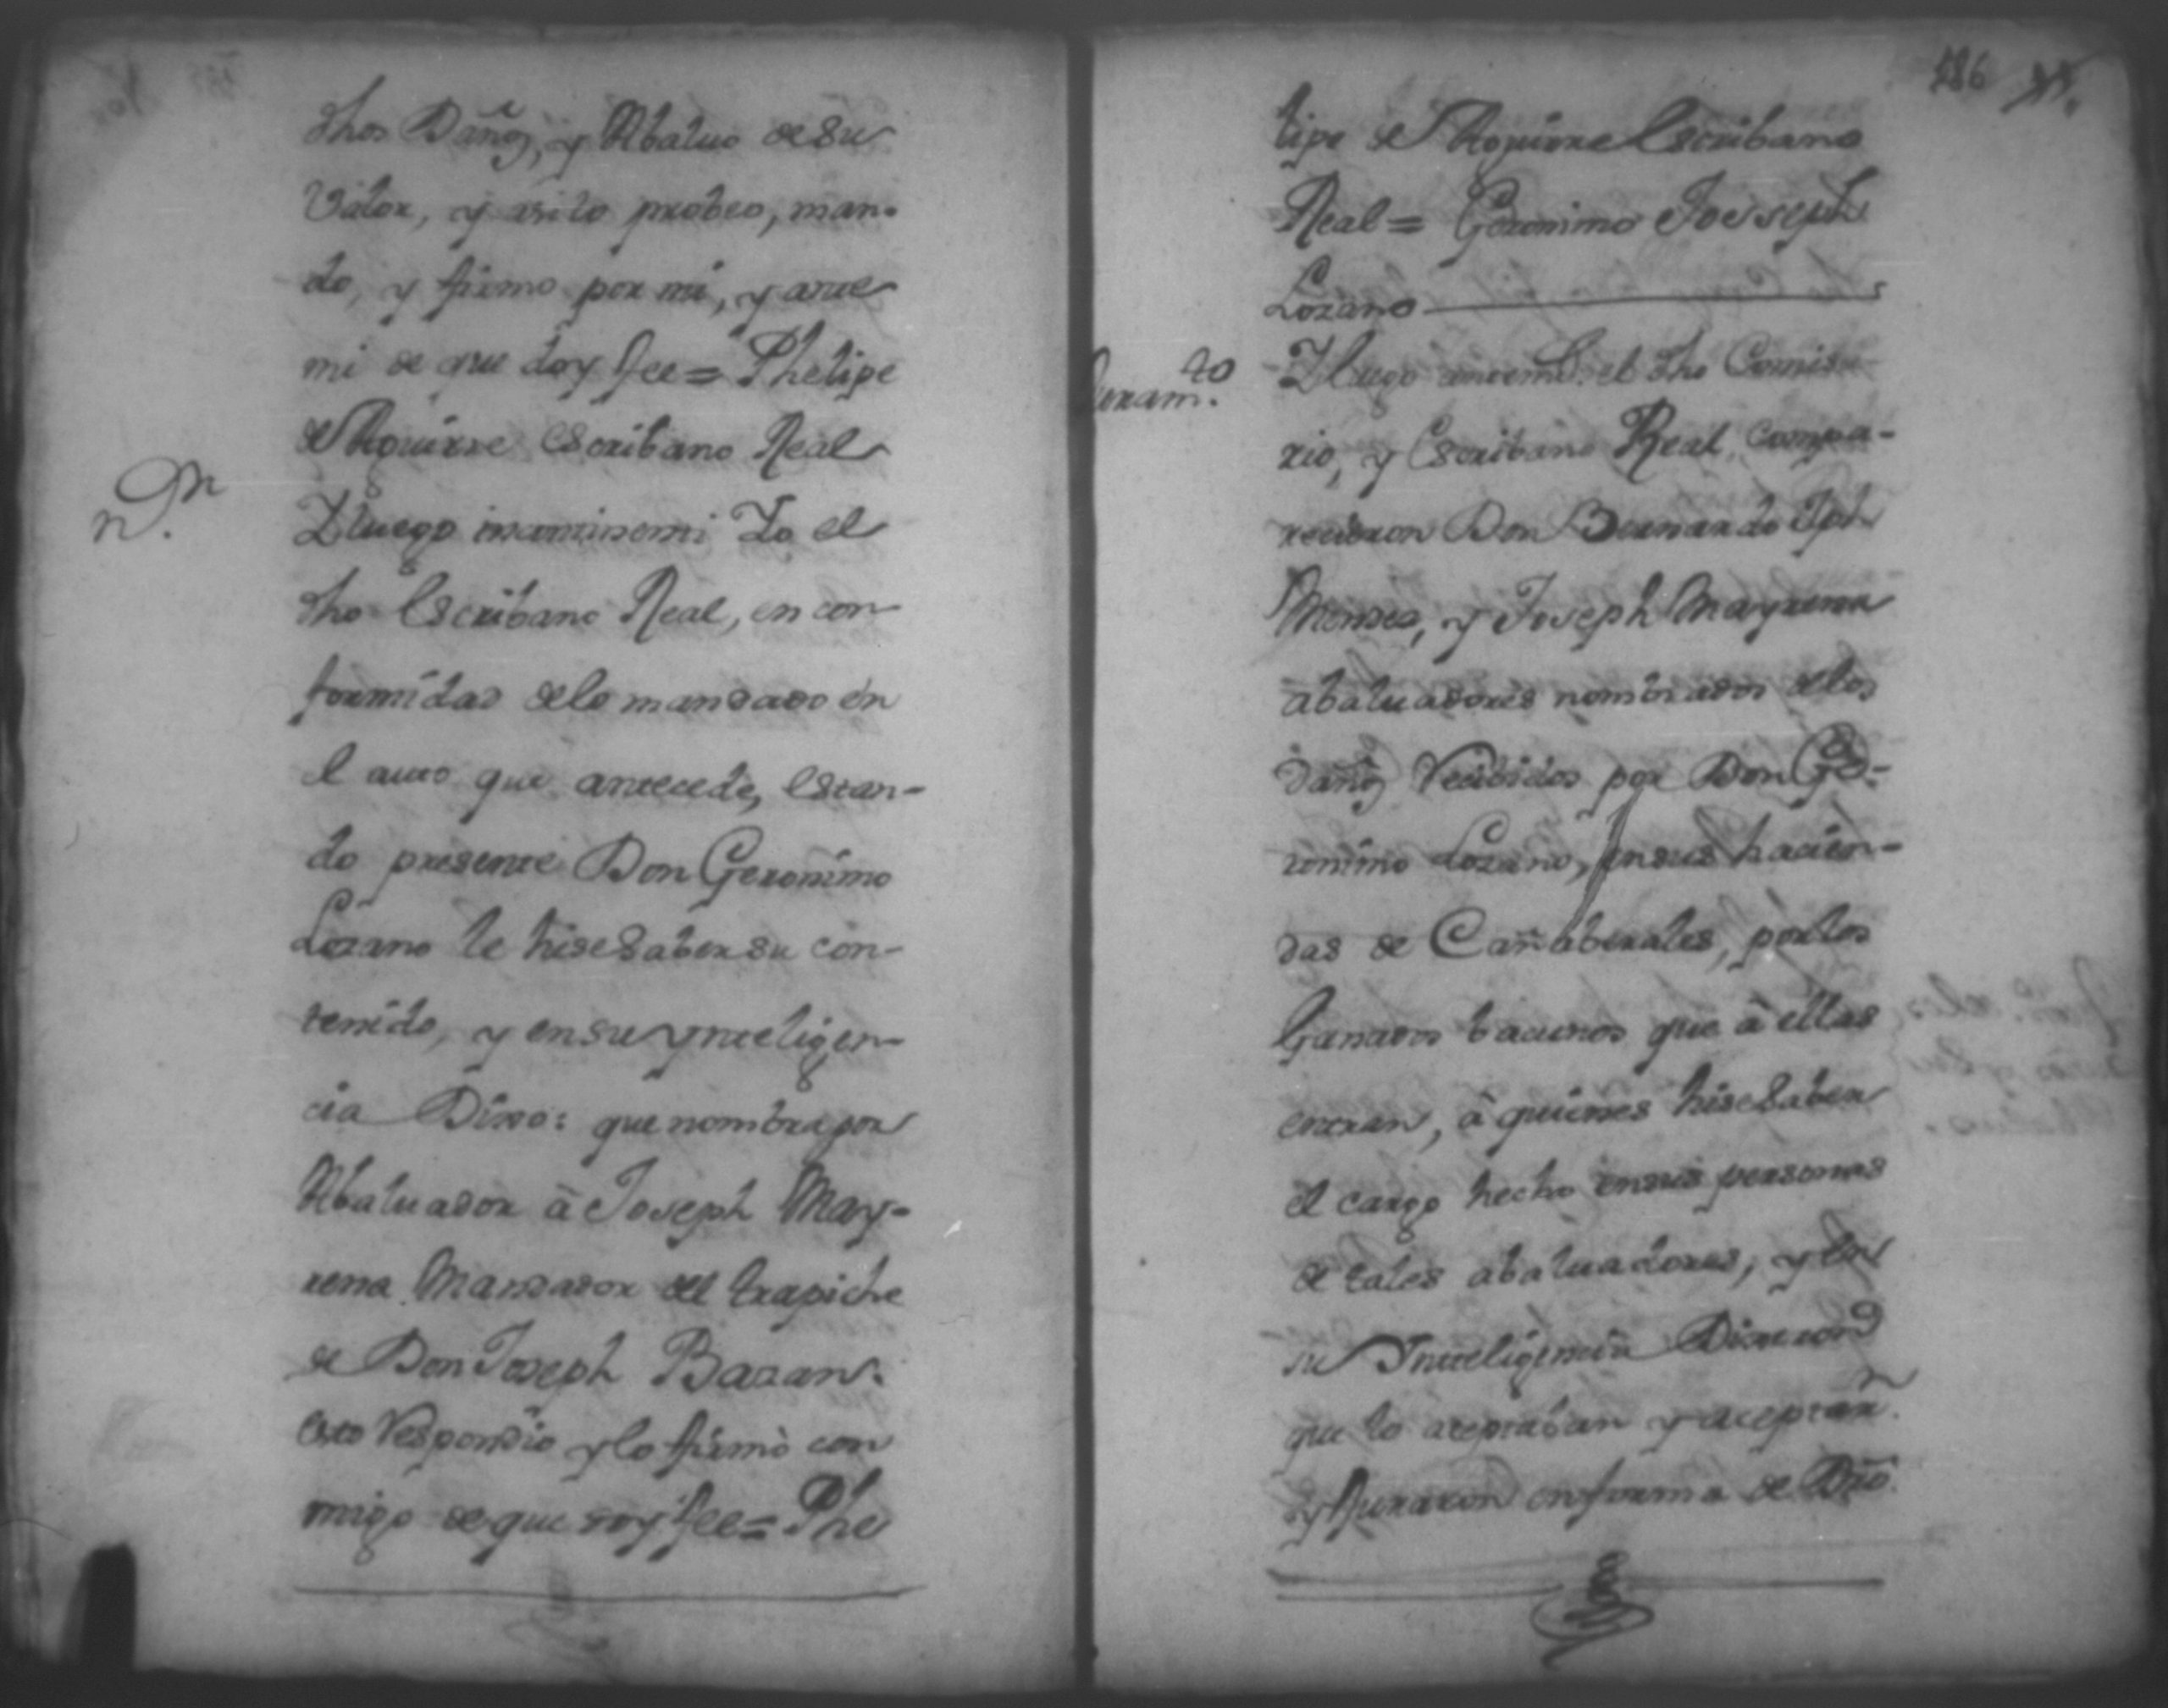 dhos Dañoˢ, y Abaluo de su
Valor, y asi lo probeo, man-
do, y firmo por mi, y ante
mi de que doy fee = Phelipe
de Aguirre Escribano Real
Y luego incontinenti Yo el
dho Escribano Real, en con-
formidad de lo mandado en
el auto que antecede, Estan-
do presente Don Geronimo
Lozano le hise Saber su con-
tenido, y en su ynteligen-
cia Dixo: que nombra por
Abaluador â Joseph May-
rena Mandador del trapiche
de Don Joseph Bazan.
esto Respondio y lo firmó con
migo de que doy fee = Phe
186
lipe de Aguirre Escribano
Real = Geronimo Joesseph
Lozano
Juram.to
Y luego el dho Comisa-
rio, y Escribano Real Compa-
recieron Don Bernardo Jph
y Joseph Mayrena
abaluadores nombrados de los
dañoˢ Recibidos por Don Ge-
ronimo Lozano, en sus hacien-
das de Cañaberales, por los
Ganados bacunos que â ellas
entran, â quienes hise Saber
el cargo hecho en sus personas
de tales abaluadores, y en
su Ynteligencia Dixeron
que lo aceptaban y aceptarn
y Juraron en forma de Dro.